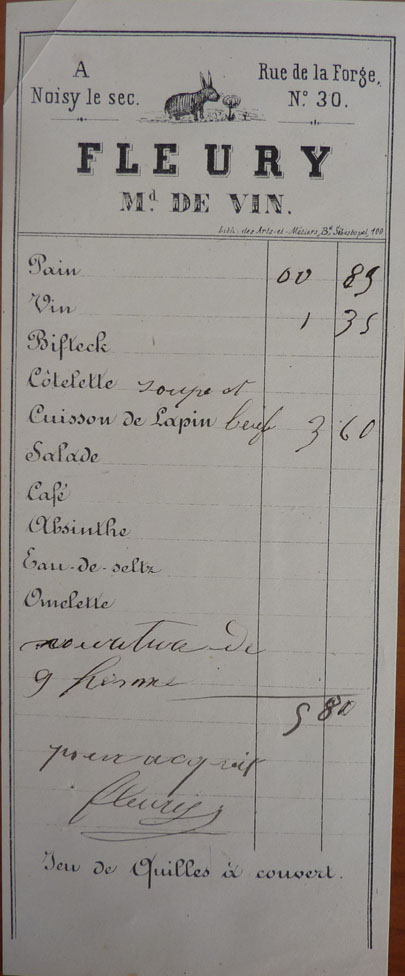 A
Noisy le sec.
Rue de la Forge,
N.º 30.
FLEURY
Mᵈ DE VIN.
Lith. des Arts-et-Métiers, Bᵈ Sébastopol, 100
Pain 00 85
Vin 1 35
Bifteck
Côtelette soupe et
Cuisson de Lapin beuf 3 60
Salade
Café
Absinthe
Eau-de-seltz
Omelette
de
9 homme
5 80
pour acquit
fleury
Jeu de Quilles à couvert.